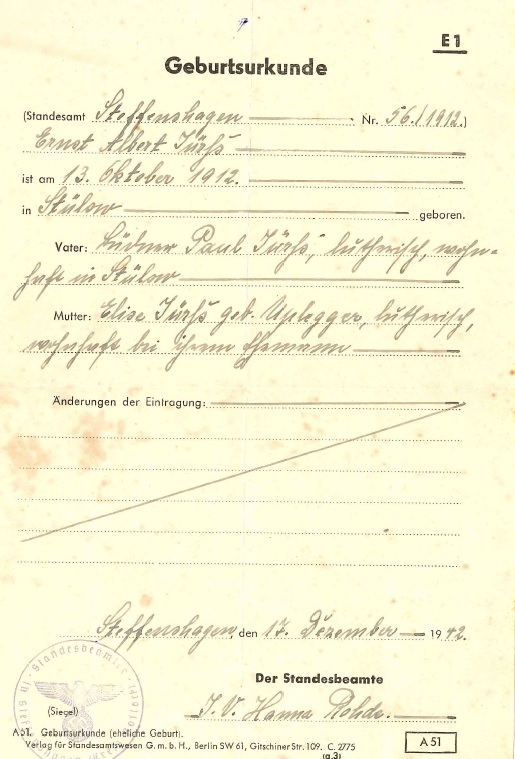 E 1
Geburtsurkunde
(Standesamt Steffenshagen Nr. 56./1912.)
Ernst Albert Jürß
ist am 13. Oktober 1912.
in Stülow geboren.
Vater: Büdner Paul Jürß, lutherisch, wohn-
haft in Stülow
Mutter: Elise Jürß geb. Uplegger, lutherisch,
wohnhaft bei ihrem Ehemann
Änderungen der Eintragung:
Steffenshagen, den 17. Dezember 1942.
Der Standesbeamte
(Siegel) I. V. Hanna Rohde.
A 51. Geburtsurkunde (eheliche Geburt).
Verlag für Standesamtswesen G. m. b. H., Berlin SW 61, Gitschiner Str. 109. C. 2775
(g.3)
A 51